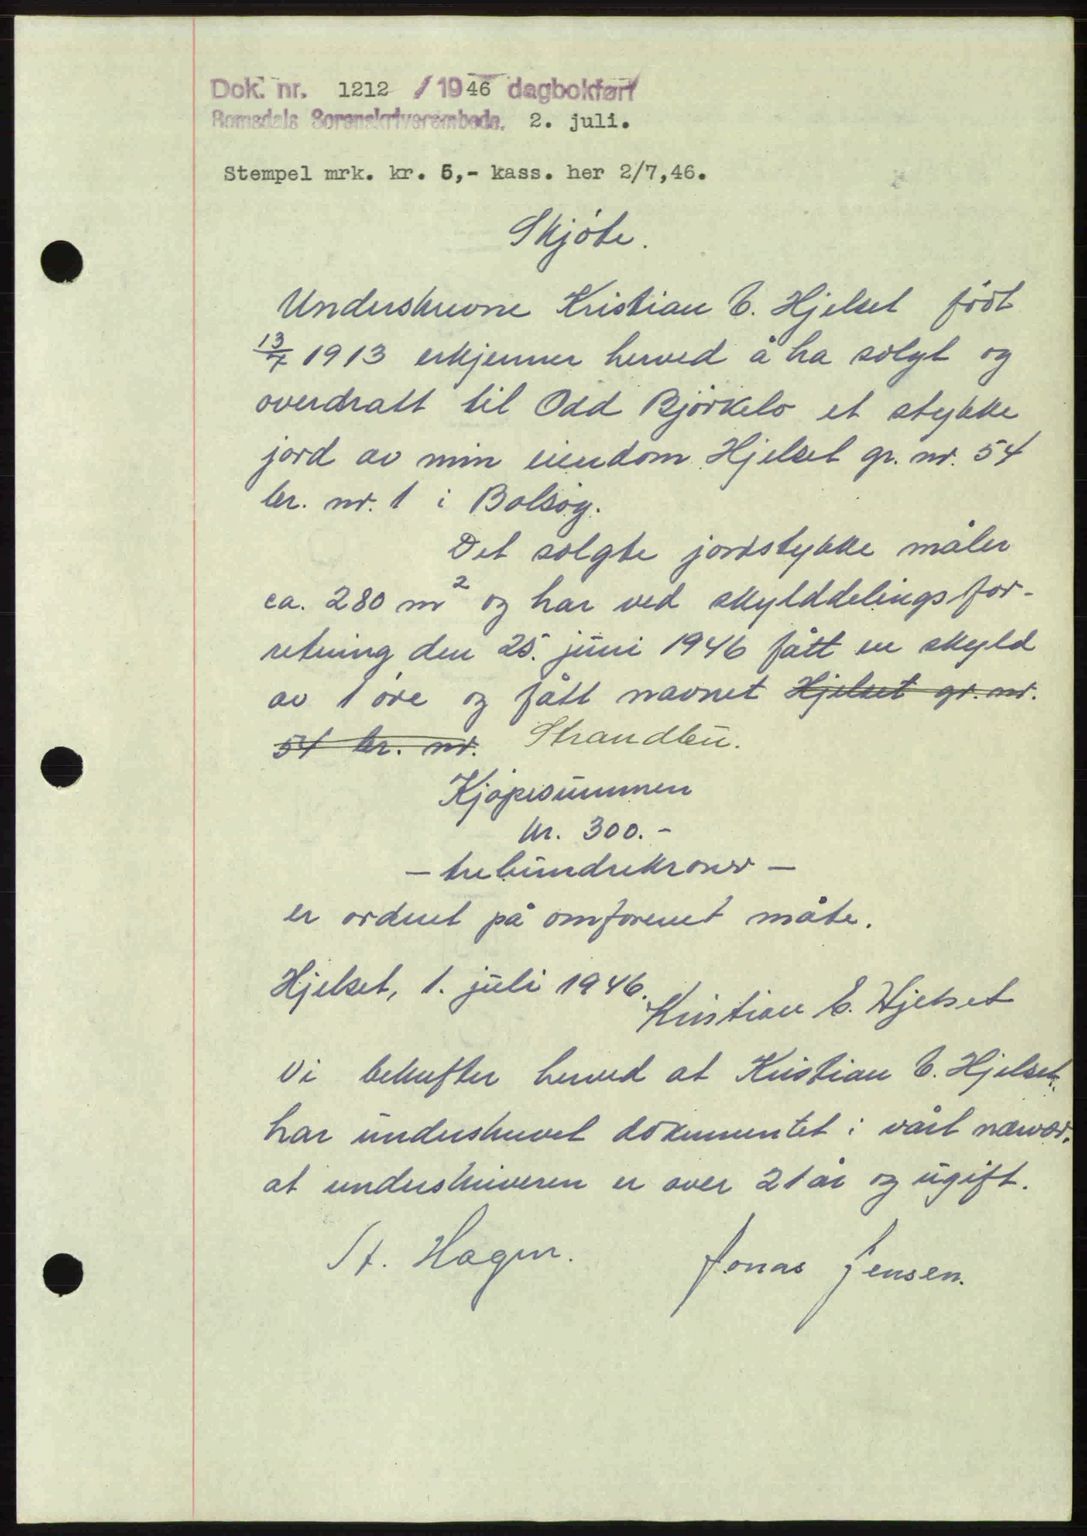 Dok. nr. 1212 / 1946 dagbokført
Romsdals Sorenskriverembede. 2. juli.
Stempel mrk. kr. 5,- kass. her 2/7,46.
Skjöte.
Underskrevne Kristian E. Hjelset födt
13/7 1913 erkjenner herved å ha solgt og
overdratt til Odd Björkelo et stykke
jord av min eiendom Hjelset gr. nr. 54
br. nr. 1 i Bolsöy.
Det solgte jordstykke måler
ca. 280 m² og har ved skylddelingsfor-
retning den 25. juni 1946 fått en skyld
av 1 öre og fått navnet Hjelset gr. nr.
54 br. nr. Strandbu.
Kjöpesummen
kr. 300.-
- trehundrekroner -
er ordnet på omforenet måte.
Hjelset, 1. juli 1946.
Kristian E. Hjelset
Vi bekrefter herved at Kristian E. Hjelset
har underskrevet dokumentet i vårt nærvær,
at underskriveren er over 21 år og ugift.
St. Hagen.
Jonas Jensen.